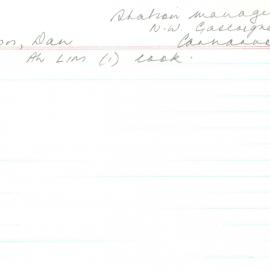 Station manage
N.W. Gascoigne
on, Dan Carnarvo
Ah Lim (1) cook.